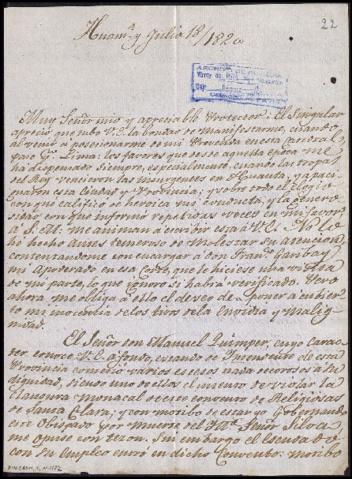 22
Huam.ª y Julio 18/1820
Muy Señor mio y apreciable Protector. El Singular
aprecio que tubo V.E. la bondad de manifestarme, quando
al venir a posecionarme de mi Prevenda en esta Yglesia
paso p.r Lima: los favores que se ha en aquella
ha dispensado siempre, especialmente quando las tropas
del Rey vencieron los Ynsurgentes en Huanta, y apaci-
guaron esta Ciudad y Provincia; y sobre todo el Elogio
con que calificó de heroica mi conducta, y la Genero-
sidad con que informó repetidas veces en mi favor
a S.M. me animan á escribir esta á V.E. No lo
hé hecho Antes temeroso de molestar Su atencion,
contentandome con encargar á don Fran.co Garibay
mi Apoderado en esa Corte que le hiciese una visita
de mi parte, lo que ignoro si habrá verificado. Pero
ahora me obliga á ello el deseo de poner á cubier-
to mi inocencia de los tiros de la Envidia y Malig-
nidad.
El Señor don Manuel Quimper, cuyo carac-
ter conoce V.E. á fondo, estando de Yntendente de esta
Provincia cometió varios excesos nada decorosos á Su
dignidad, siendo uno de ellos el intento de violar la
Clausura Monacal de ese convento de Religiosas
de Santa Clara; y con motibo de estar yo Gobernando
este Obispado por muerte del Yll.mo Señor Silva
me opuse con tezon. Sin embargo el Escudado
con Su Empleo entró en dicho Convento: motibo